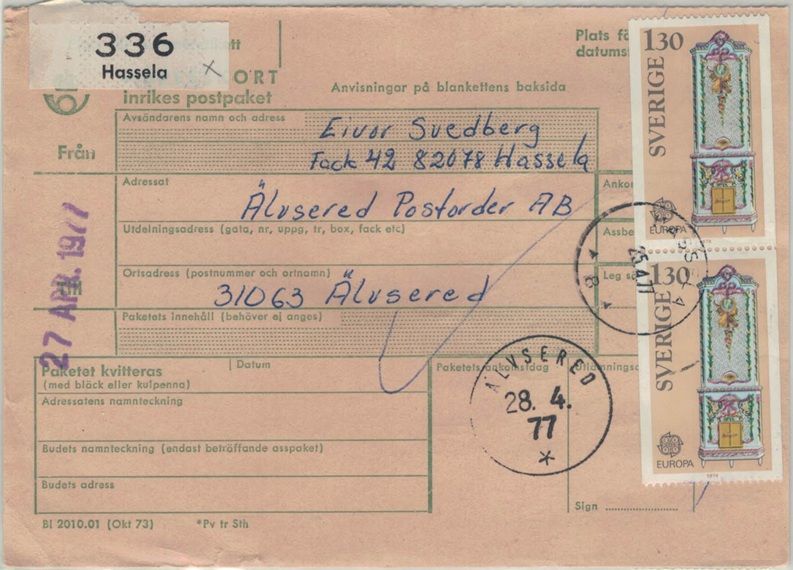 336
Hassela
inrikes postpaket
Anvisningar på blankettens baksida
Plats fö
datumst
130
SVERIGE
EUROPA
1976
Avsändarens namn och adress
Eivor Svedberg
Fack 42 82078 Hassela
Från
Adressat
Älvsered Postorder AB
Ankom
Utdelningsadress (gata, nr, uppg, tr, box, fack etc)
Assbe
Ortsadress (postnummer och ortnamn)
31063 Älvsered
Leg s
25.4.77
27 APR. 1977
Till
Paketets innehåll (behöver ej anges)
130
SVERIGE
EUROPA
1976
Paketet kvitteras
(med bläck eller kulpenna)
Datum
Paketets ankomstdag
Utlämningsd
Adressatens namnteckning
ÄLVSERED
28. 4.
77
*
Budets namnteckning (endast beträffande asspaket)
Budets adress
Sign
Bl 2010.01 (Okt 73) *Pv tr Sth